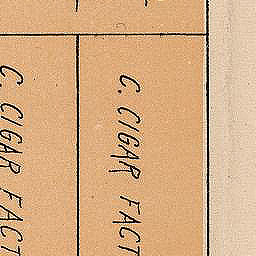 C. CIGAR FACT
C. CIGAR FACT